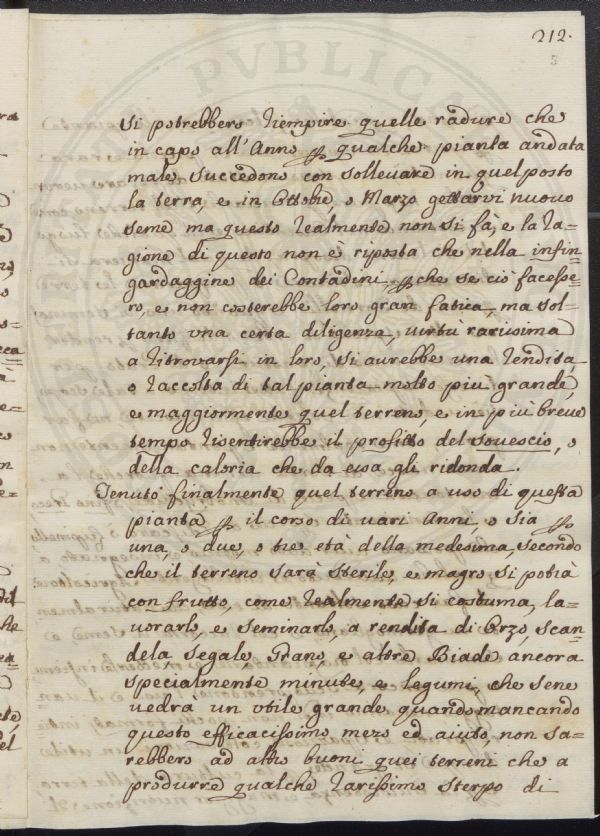 212.
5
si potrebbero riempire quelle radure che
in capo all'Anno p qualche pianta andata
male succedono con sollevare in quel posto
la terra, e in Ottobre, o Marzo gettarvi nuovo
seme ma questo realmente non si fà, e la ra=
gione di questo non è riposta che nella infin=
gardaggine dei Contadini, pche se ciò facesse=
ro, e non costerebbe loro gran fatica, ma sol=
tanto una certa diligenza, virtu rarissima
a ritrovarsi in loro, si avrebbe una rendita,
o raccolta di tal pianta molto più grande,
e maggiormente quel terreno, e in più breve
tempo risentirebbe il profitto del sovescio, o
della caloria che da essa gli ridonda.
Tenuto finalmente quel terreno a uso di questa
pianta p il corso di vari Anni, o sia p
una, o due, o tre età della medesima, secondo
che il terreno sarà sterile, e magro si potrà
con frutto, come realmente si costuma, la=
vorarlo, e seminarlo, a rendita di Orzo, scan=
dela segale, Grano, e altre Biade ancora
specialmente minute, e legumi, che sene
vedrà un utile grande quando mancando
questo efficacissimo mezo ed aiuto, non sa=
rebbero ad altro buoni quei terreni che a
produrre qualche rarissimo sterpo di